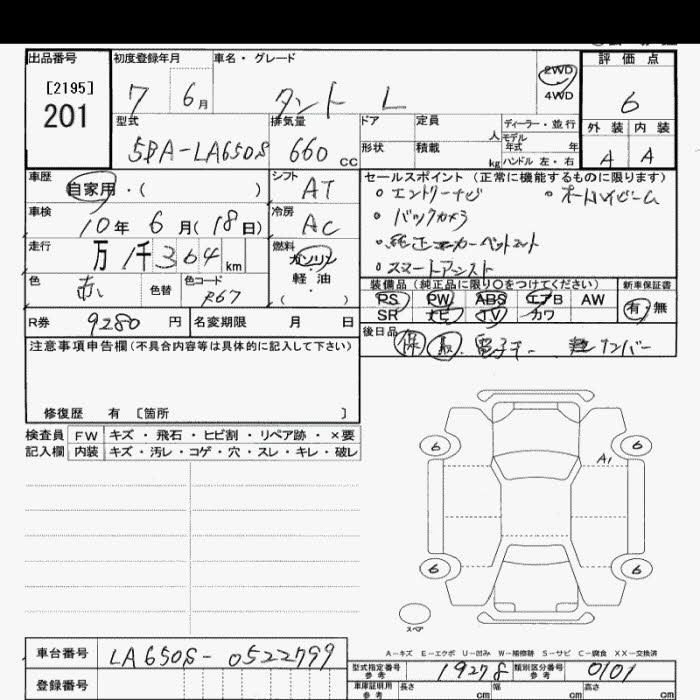 出品番号 初度登録年月 車名・グレード 評価点
[2195]
201
7 6月 タント L 2WD 4WD 6
型式 排気量 ドア 定員 人 ディーラー・並行 外装 内装
5BA-LA650S 660cc 形状 積載 kg モデル年式 年 ハンドル 左・右 A A
車歴 自家用・( ) シフト AT
セールスポイント(正常に機能するものに限ります)
エントリーナビ オートハイビーム
バックカメラ
純正カーペットマット
スマートアシスト
車検 10年 6月(18日) 冷房 AC
走行 万 1千364km 燃料 ガソリン・軽油
色 赤 色替 色コード R67
装備品(純正品に限り○をつけてください) 新車保証書
PS PW ABS エアB AW 有・無
SR ナビ TV カワ
R券 9280円 名変期限 月 日
後日品 保 取 電子キー
注意事項申告欄(不具合内容等は具体的に記入して下さい)
修復歴 有 [箇所 ]
検査員 FW キズ・飛石・ヒビ割・リペア跡・×要
記入欄 内装 キズ・汚レ・コゲ・穴・スレ・キレ・破レ
6 6
A1
6 6
スペア
A-キズ E-エクボ U-凹み W-補修跡 S-サビ C-腐食 XX-交換済
車台番号 LA650S-0522799
型式指定番号 参考 19278 類別区分番号 参考 0101
登録番号
車庫証明用 参考 長さ cm 幅 cm 高さ cm